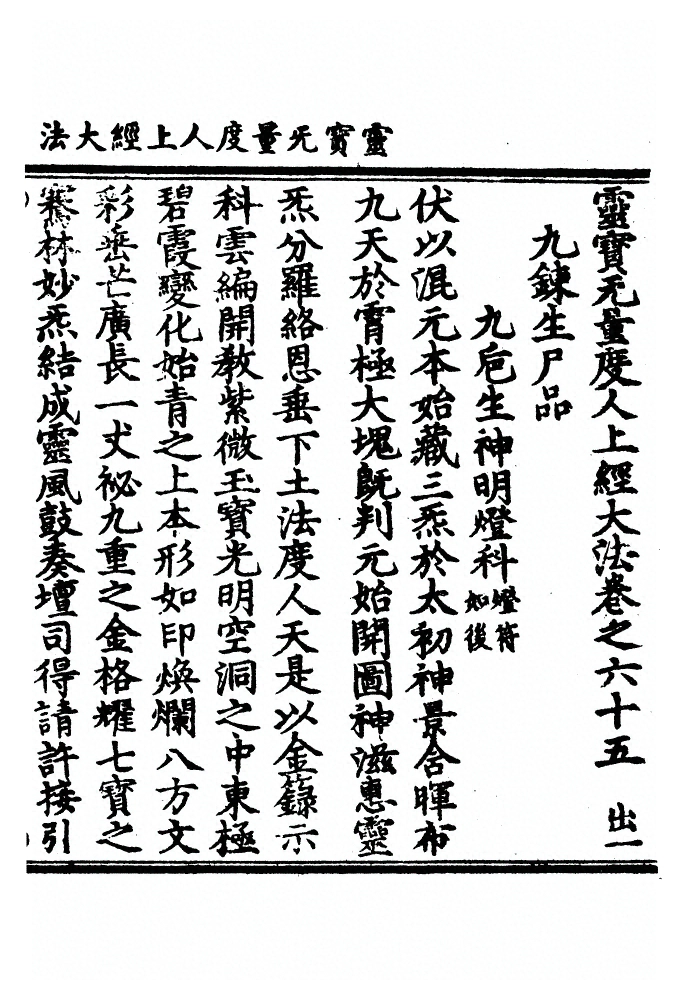 靈寶无量度人上經大法
靈寶无量度人上經大法卷之六十五　出一
九鍊生尸品
九巵生神明燈科燈符如後
伏以混元本始藏三炁於太初神景含暉布
九天於霄極大塊旣判元始開圖神滋惠靈
炁分羅絡恩垂下土法度人天是以金籙示
科雲編開教紫微玉寶光明空洞之中東極
碧霞變化始青之上本形如印煥爛八方文
彩垂芒廣長一丈祕九重之金格耀七寶之
騫林妙炁結成靈風鼓奏壇司得請許接引